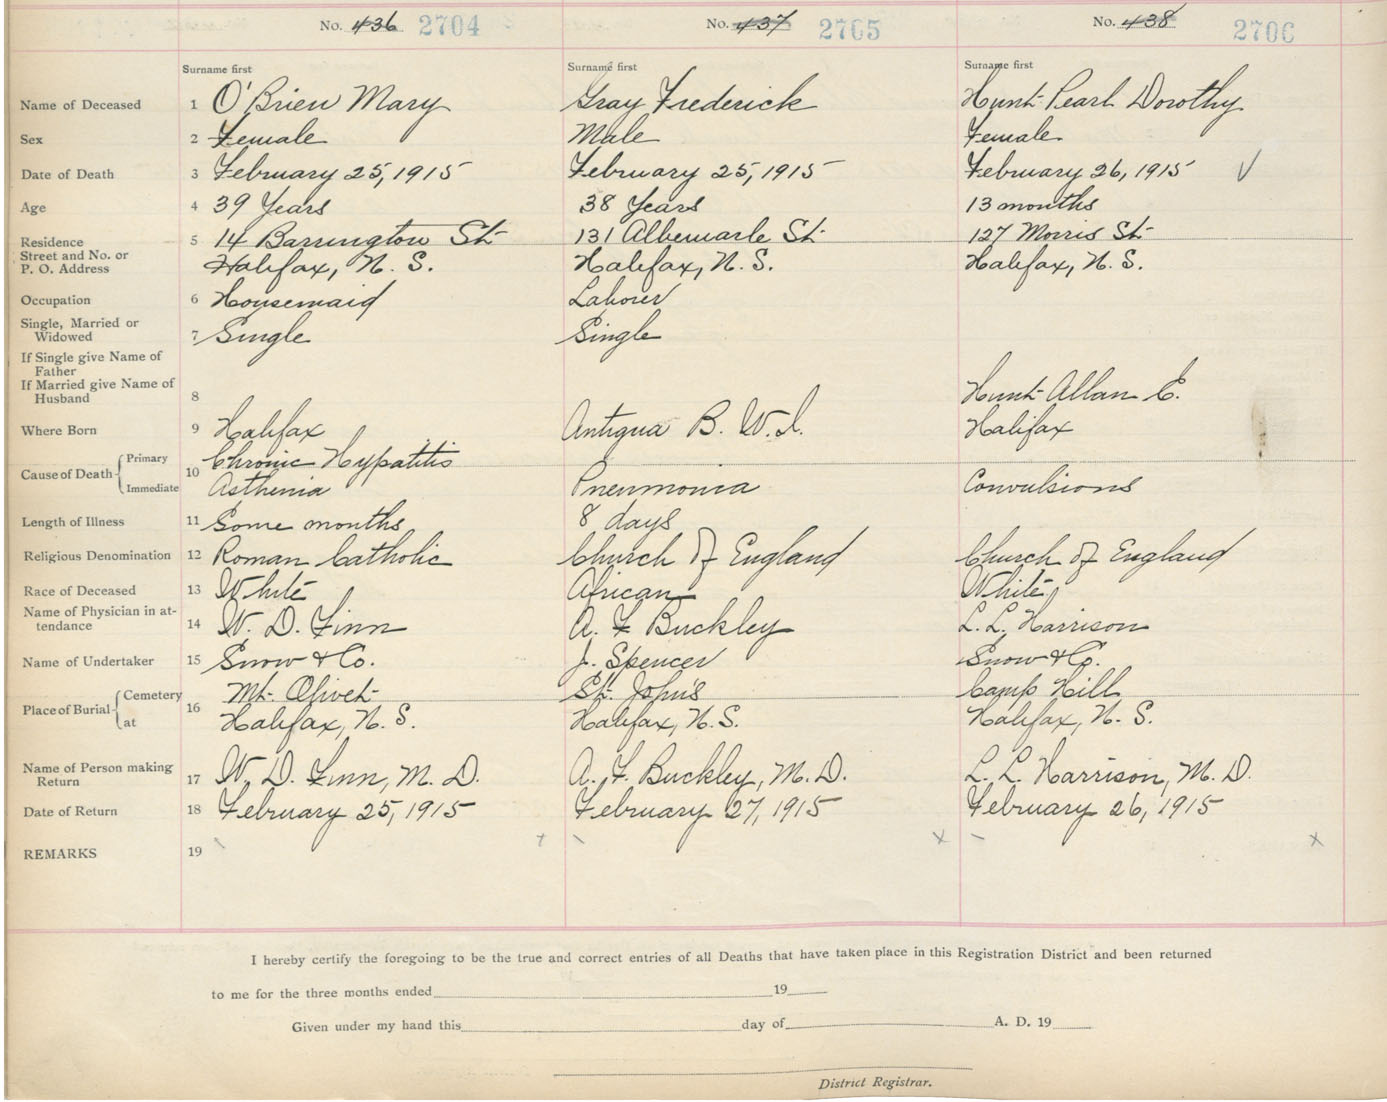 No. 436 2704 No. 437 2705 No. 438 2706
Surname first Surname first Surname first
Name of Deceased 1 O'Brien Mary Gray Frederick Hunt Pearl Dorothy
Sex 2 Female Male Female
Date of Death 3 February 25, 1915 February 25, 1915 February 26, 1915 √
Age 4 39 Years 38 Years 13 months
Residence 5 14 Barrington St. 131 Albemarle St. 127 Morris St.
Street and No. or
P. O. Address Halifax, N. S. Halifax, N. S. Halifax, N. S.
Occupation 6 Housemaid Laborer
Single, Married or
Widowed 7 Single Single
If Single give Name of
Father
If Married give Name of
Husband 8 Hunt Allan E.
Where Born 9 Halifax Antigua B. W. I. Halifax
Cause of Death 10 Primary Chronic Hypatitis
Immediate Asthenia Pneumonia Convulsions
Length of Illness 11 Some months 8 days
Religious Denomination 12 Roman Catholic Church of England Church of England
Race of Deceased 13 White African White
Name of Physician in at-
tendance 14 W. D. Finn A. F Buckley L. L. Harrison
Name of Undertaker 15 Snow & Co. J. Spencer Snow & Co.
Place of Burial 16 Cemetery Mt. Olivet St. John's Camp Hill
at Halifax, N. S. Halifax, N. S. Halifax, N. S.
Name of Person making
Return 17 W. D. Finn, M. D. A. F. Buckley, M. D. L. L. Harrison, M. D.
Date of Return 18 February 25, 1915 February 27, 1915 February 26, 1915
x x x
REMARKS 19
I hereby certify the foregoing to be the true and correct entries of all Deaths that have taken place in this Registration District and been returned
to me for the three months ended 19
Given under my hand this day of A. D. 19
District Registrar.